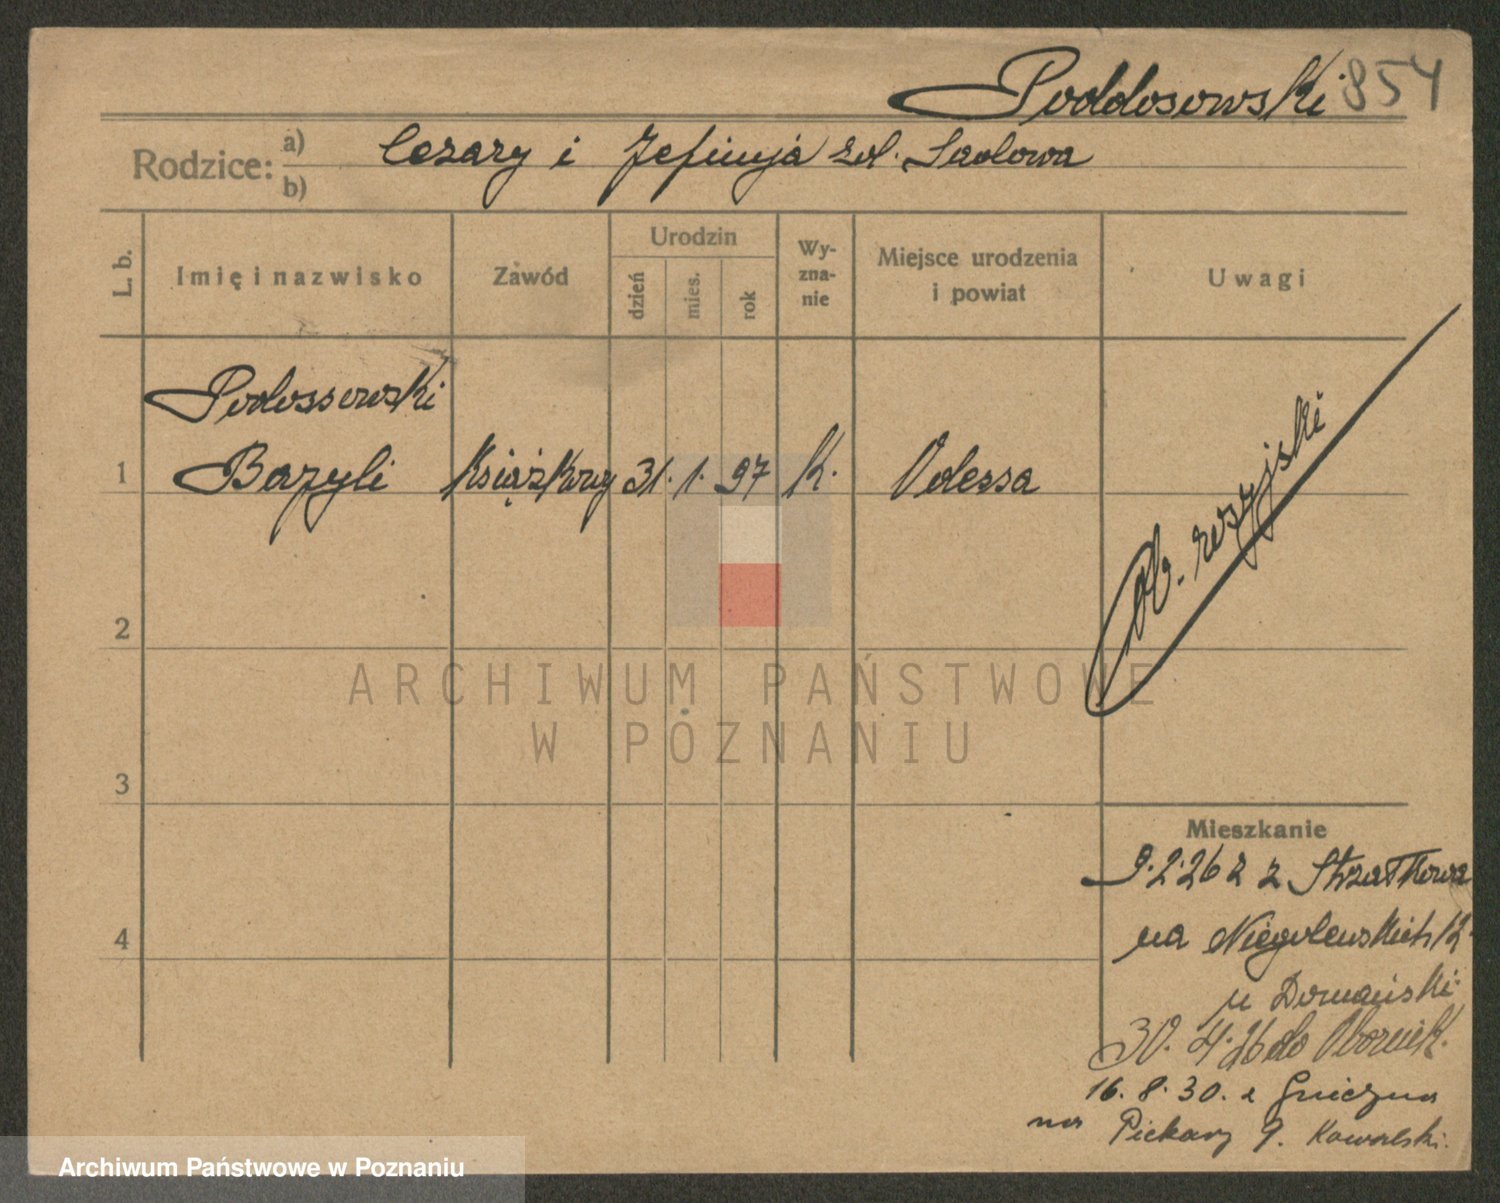 Poddosowski 854
Rodzice: a) Cezary i Jefimja zd. Sadowa
b)
L. b. Imię i nazwisko Zawód Urodzin dzień mies. rok Wy-zna-nie Miejsce urodzenia i powiat Uwagi
Podossowski
1 Bazyli Książkowy 31. 1. 97 K. Odessa
ob. rosyjski
2
3
4
ARCHIWUM PAŃSTWOWE
W POZNANIU
Mieszkanie
9.2.26 z Strzałkowa
na Niegolewskich 12
u Domański
30. 4. 26 do Obornik.
16. 8. 30. z Gniezna
na Piekary 9. Kowalski.
Archiwum Państwowe w Poznaniu